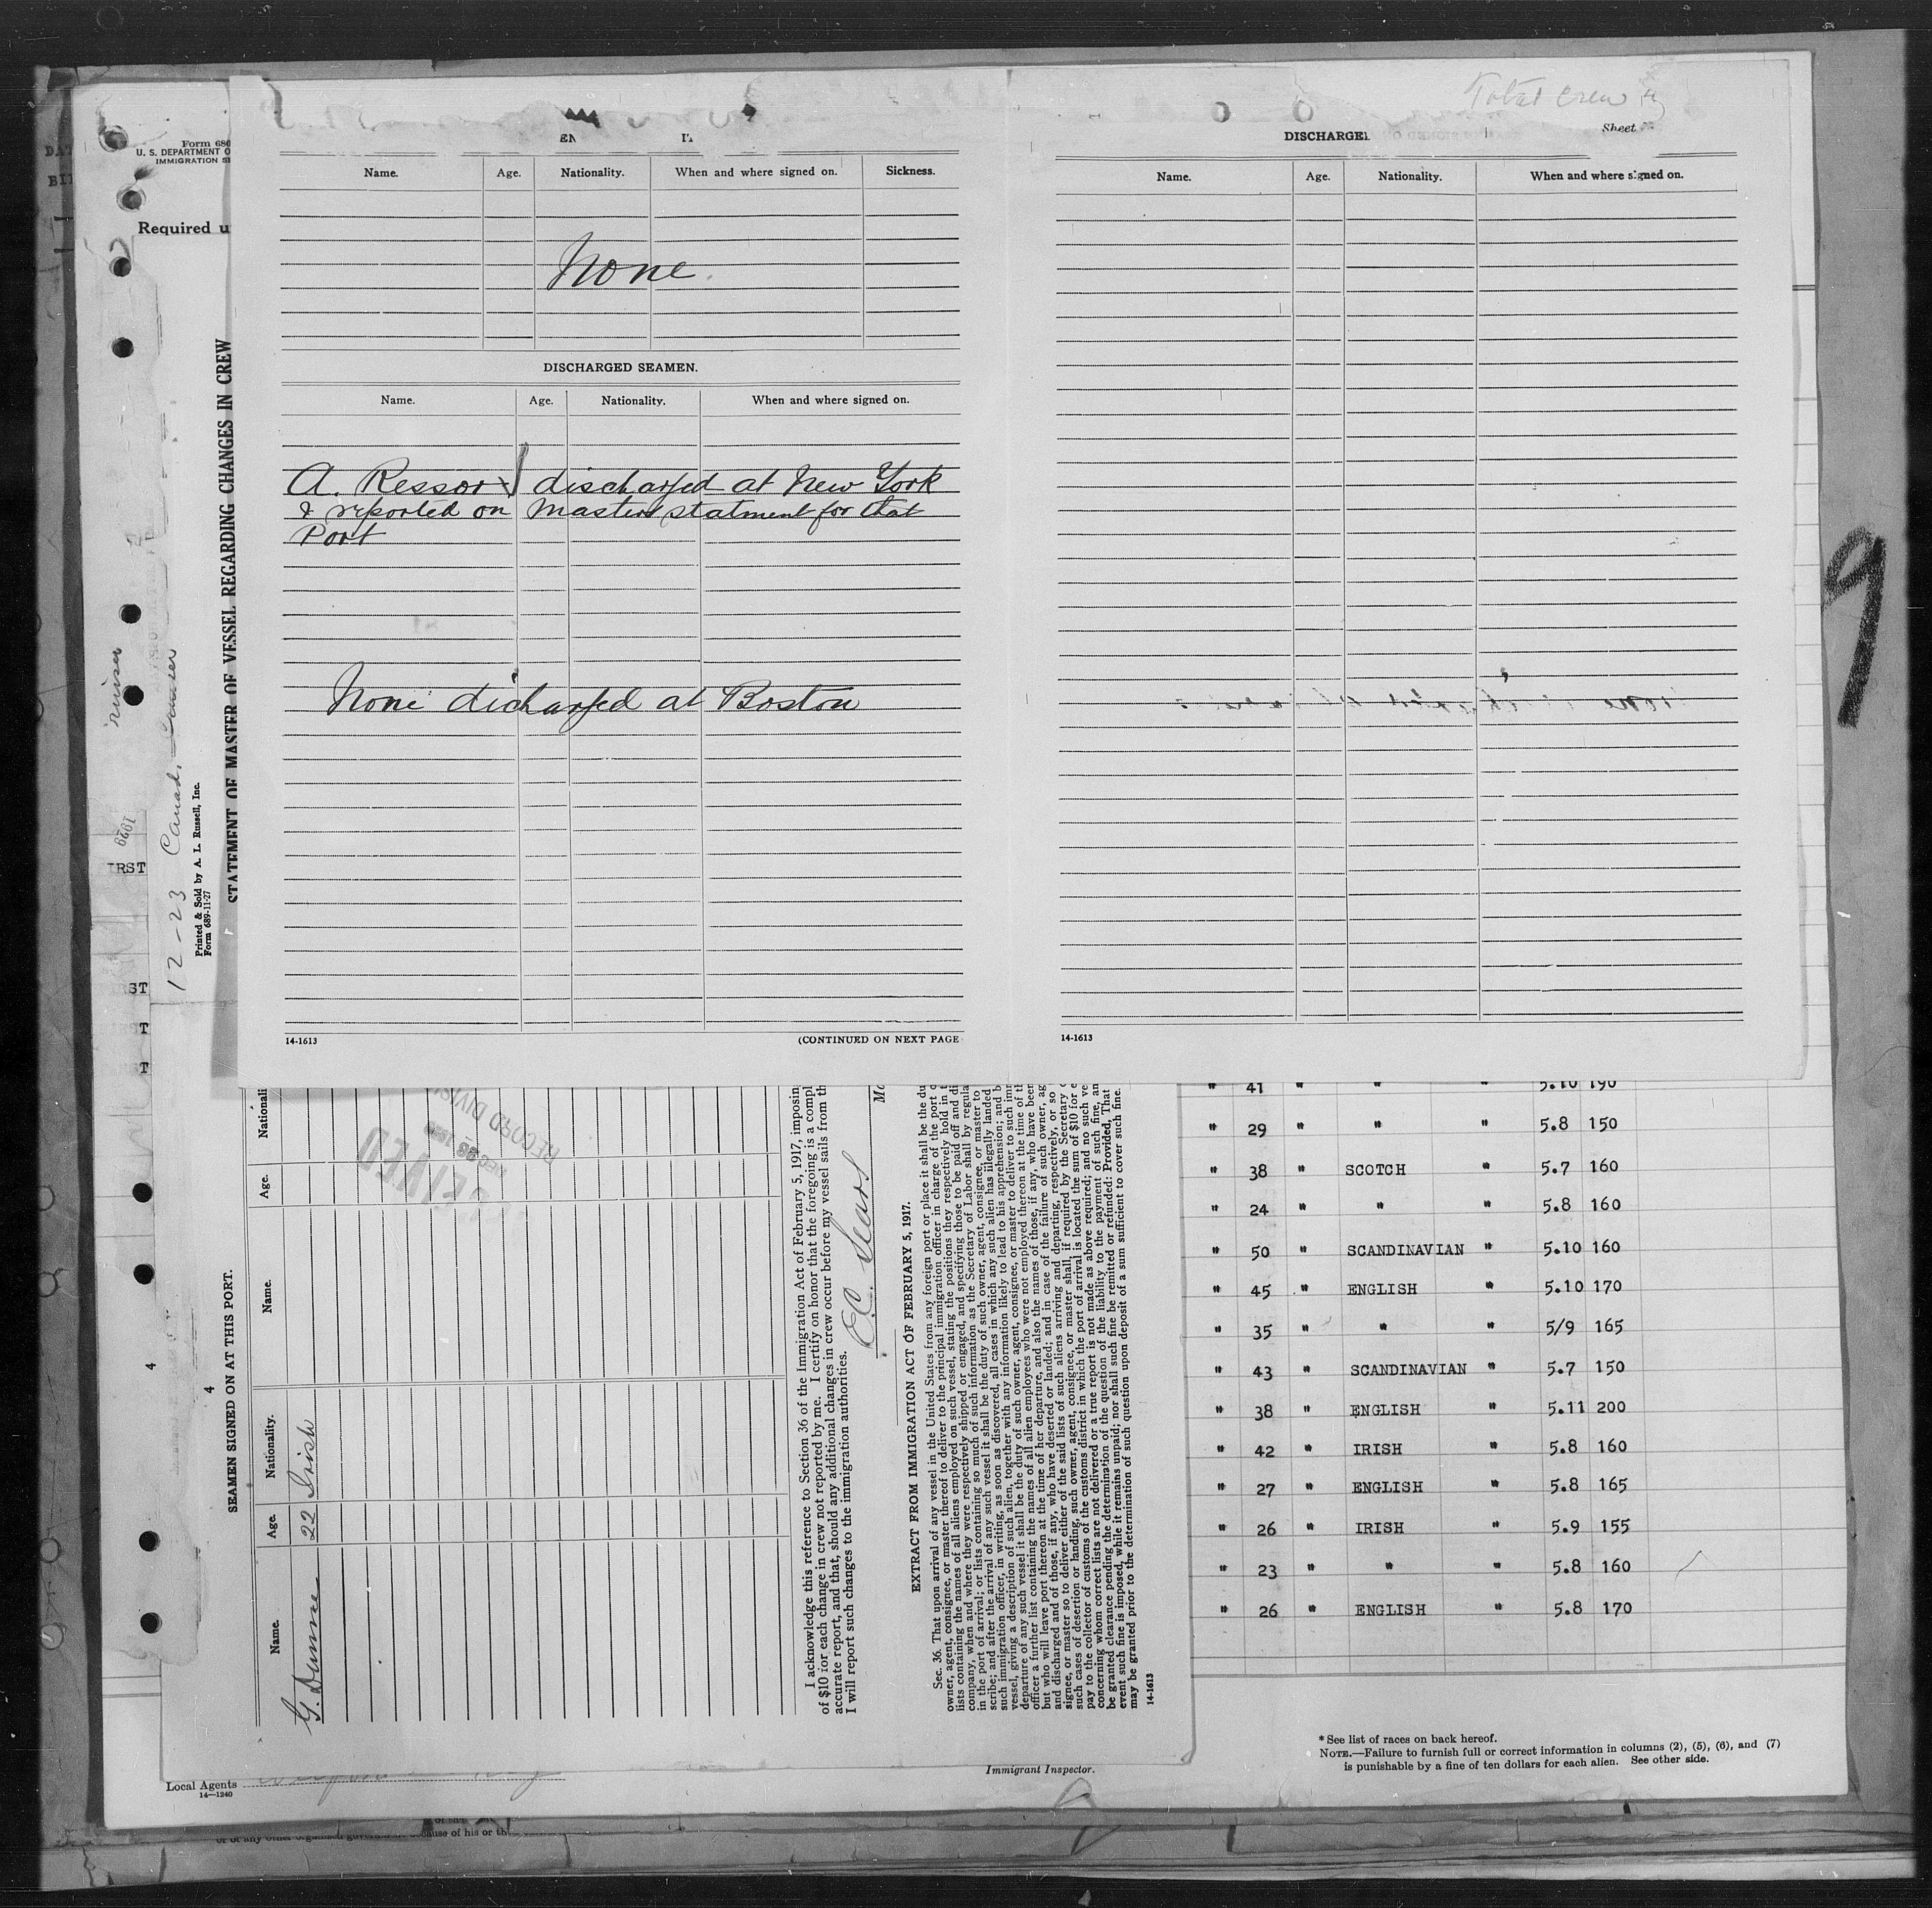 Total Crew
Sheet
DISCHARGE
Name. Age. Nationality. When and where signed on. Sickness.
None.
DISCHARGED SEAMEN.
Name. Age. Nationality. When and where signed on.
A. Ressor discharged at New York
& reported on Masters statment for that
Port
None dicharged at Boston
14-1613 (CONTINUED ON NEXT PAGE
Name. Age. Nationality. When and where signed on.
14-1613
9
Form 680
U. S. DEPARTMENT O
IMMIGRATION SE
Required u
STATEMENT OF MASTER OF VESSEL REGARDING CHANGES IN CREW
Printed & Sold by A. L. Russell, Inc.
Form 689-11-27
12-23 Canad.
IRST
ST
T
T
4
4
SEAMEN SIGNED ON AT THIS PORT.
Name. Age. Nationality. Name. Age. Nationali
G. Dunne 22 Irish
RECORD DIVIS
I acknowledge this reference to Section 36 of the Immigration Act of February 5, 1917, imposin
of $10 for each change in crew not reported by me. I certify on honor that the foregoing is a compl
accurate report, and that, should any additional changes in crew occur before my vessel sails from th
I will report such changes to the immigration authorities.
E.C. Sears
Ma
EXTRACT FROM IMMIGRATION ACT OF FEBRUARY 5, 1917.
Sec. 36. That upon arrival of any vessel in the United States from any foreign port or place it shall be the du
owner, agent, consignee, or master thereof to deliver to the principal immigration officer in charge of the port o
lists containing the names of all aliens employed on such vessel, stating the positions they respectively hold in t
company, when and where they were respectively shipped or engaged, and specifying those to be paid off and di
in the port of arrival; or lists containing so much of such information as the Secretary of Labor shall by regula
scribe; and after the arrival of any such vessel it shall be the duty of such owner, agent, consignee, or master to
such immigration officer, in writing, as soon as discovered, all cases in which any such alien has illegally landed
vessel, giving a description of such alien, together with any information likely to lead to his apprehension; and b
departure of any such vessel it shall be the duty of such owner, agent, consignee, or master to deliver to such imm
officer a further list containing the names of all alien employees who were not employed thereon at the time of th
but who will leave port thereon at the time of her departure, and also the names of those, if any, who have been
and discharged and of those, if any, who have deserted or landed; and in case of the failure of such owner, ag
signee, or master so to deliver either of the said lists of such aliens arriving and departing, respectively, or so
such cases of desertion or landing, such owner, agent, consignee, or master shall, if required by the Secretary o
pay to the collector of customs of the customs district in which the port of arrival is located the sum of $10 for e
concerning whom correct lists are not delivered or a true report is not made as above required; and no such ve
be granted clearance pending the determination of the question of the liability to the payment of such fine, an
event such fine is imposed, while it remains unpaid; nor shall such fine be remitted or refunded: Provided, That
may be granted prior to the determination of such question upon deposit of a sum sufficient to cover such fine.
14-1613
" 41 " " " 5.10 190
" 29 " " " 5.8 150
" 38 " SCOTCH " 5.7 160
" 24 " " " 5.8 160
" 50 " SCANDINAVIAN " 5.10 160
" 45 " ENGLISH " 5.10 170
" 35 " " " 5/9 165
" 43 " SCANDINAVIAN " 5.7 150
" 38 " ENGLISH " 5.11 200
" 42 " IRISH " 5.8 160
" 27 " ENGLISH " 5.8 165
" 26 " IRISH " 5.9 155
" 23 " " " 5.8 160
" 26 " ENGLISH " 5.8 170
* See list of races on back hereof.
NOTE.—Failure to furnish full or correct information in columns (2), (5), (6), and (7)
is punishable by a fine of ten dollars for each alien. See other side.
Local Agents
14—1240
Immigrant Inspector.